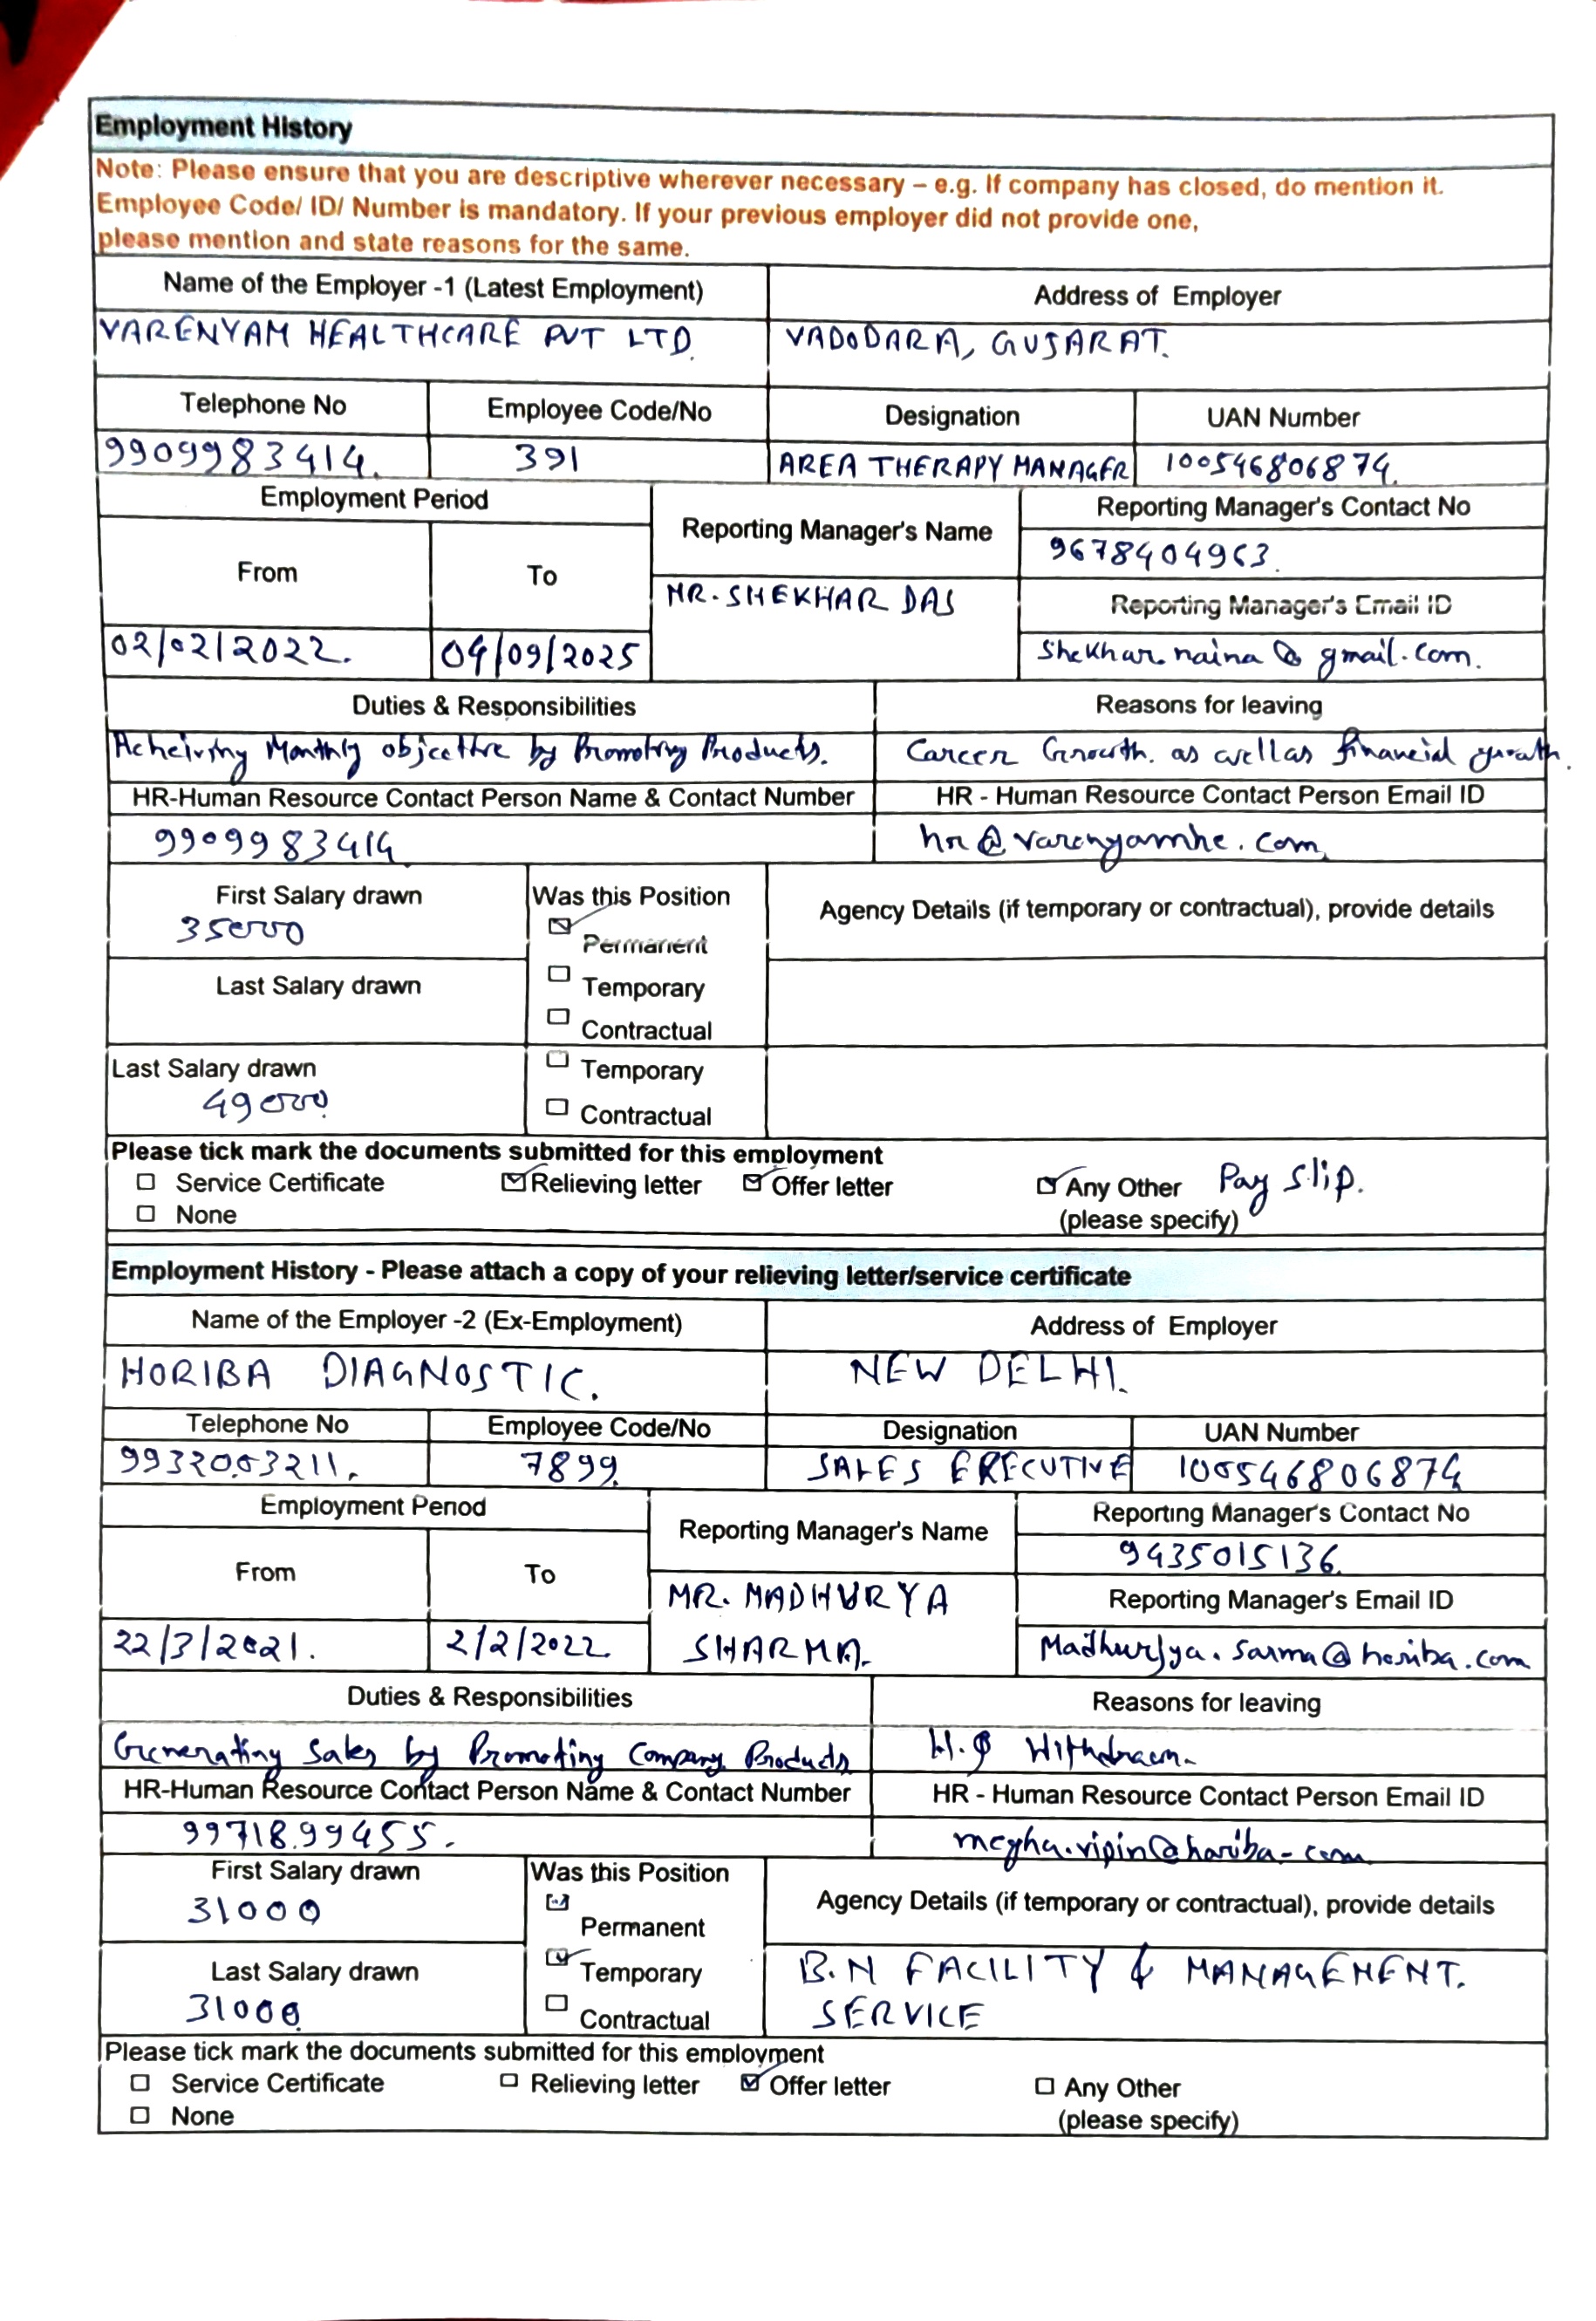 Employment History
Note: Please ensure that you are descriptive wherever necessary – e.g. If company has closed, do mention it.
Employee Code/ ID/ Number is mandatory. If your previous employer did not provide one,
please mention and state reasons for the same.
Name of the Employer -1 (Latest Employment) Address of Employer
VARENYAM HEALTHCARE PVT LTD. VADODARA, GUJARAT.
Telephone No Employee Code/No Designation UAN Number
9909983414. 391 AREA THERAPY MANAGER 100546806874.
Employment Period Reporting Manager's Name Reporting Manager's Contact No
9678404963.
From To
MR. SHEKHAR DAS Reporting Manager's Email ID
02/02/2022. 04/09/2025 Shekhar.naina@gmail.com.
Duties & Responsibilities Reasons for leaving
Acheiving Monthly objective by Promoting Products. Career Growth. as well as financial growth.
HR-Human Resource Contact Person Name & Contact Number HR - Human Resource Contact Person Email ID
9909983414 hr@varenyamhc.com.
First Salary drawn Was this Position Agency Details (if temporary or contractual), provide details
35000 Permanent
Last Salary drawn Temporary
Contractual
Last Salary drawn Temporary
49000 Contractual
Please tick mark the documents submitted for this employment
Service Certificate Relieving letter Offer letter Any Other Pay slip.
None (please specify)
Employment History - Please attach a copy of your relieving letter/service certificate
Name of the Employer -2 (Ex-Employment) Address of Employer
HORIBA DIAGNOSTIC. NEW DELHI.
Telephone No Employee Code/No Designation UAN Number
9932003211. 7899. SALES EXECUTIVE 100546806874
Employment Period Reporting Manager's Name Reporting Manager's Contact No
9435015136.
From To
MR. MADHURYA Reporting Manager's Email ID
22/3/2021. 2/2/2022. SHARMA. Madhurjya.sarma@horiba.com
Duties & Responsibilities Reasons for leaving
Generating Sales by Promoting Company Products H.Q Withdrawn.
HR-Human Resource Contact Person Name & Contact Number HR - Human Resource Contact Person Email ID
9971899455. megha.vipin@horiba.com
First Salary drawn Was this Position Agency Details (if temporary or contractual), provide details
31000 Permanent
Last Salary drawn Temporary B.N FACILITY & MANAGEMENT.
31000 Contractual SERVICE
Please tick mark the documents submitted for this employment
Service Certificate Relieving letter Offer letter Any Other
None (please specify)